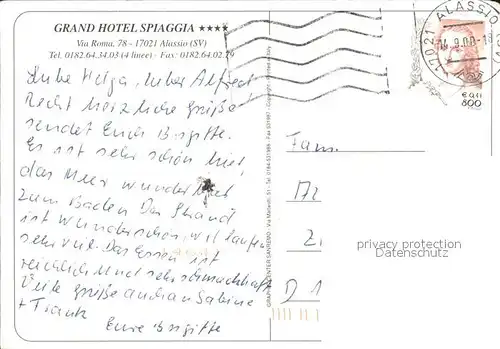 GRAND HOTEL SPIAGGIA ★★★★
Via Roma, 78 - 17021 Alassio (SV)
Tel. 0182.64.34.03 (4 linee) - Fax: 0182.64.02.79
Liebe Helga, lieber Alfred
Recht herzliche Grüße
sendet Euch Brigitte.
Es ist sehr schön hier,
das Meer wunderbar
zum Baden Der Strand
ist wunderschön, wir laufen
sehr viel. Das Essen ist
reichlich und sehr schmackhaft
Viele Grüße auch an Sabine
+ Frank
Eure Brigitte
17021 ALASSIO
800
Fam.
D 1
privacy protection
Datenschutz